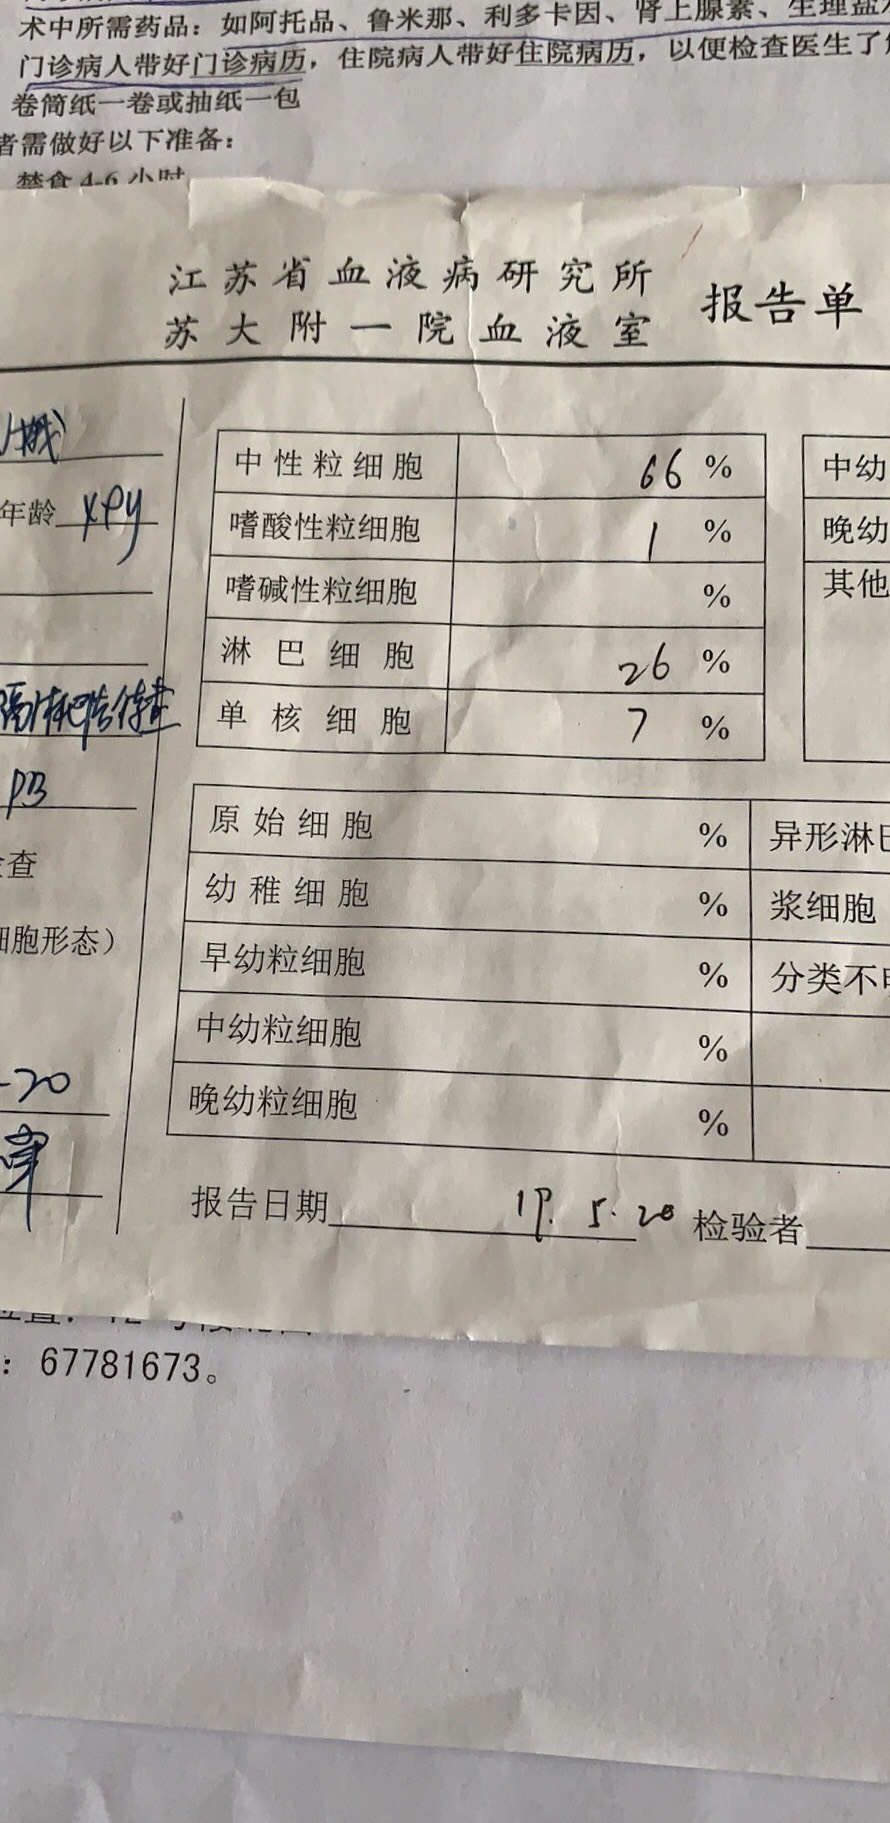 术中所需药品：如阿托品、鲁米那、利多卡因、肾上腺素、生理盐水
门诊病人带好门诊病历，住院病人带好住院病历，以便检查医生了
卷筒纸一卷或抽纸一包
者需做好以下准备：
禁食 4-6 小时
江苏省血液病研究所
苏大附一院血液室
报告单
年龄
中性粒细胞 66 %
嗜酸性粒细胞 1 %
嗜碱性粒细胞 %
淋巴细胞 26 %
单核细胞 7 %
中幼
晚幼
其他
PB
查
细胞形态）
-20
原始细胞 % 异形淋巴
幼稚细胞 % 浆细胞
早幼粒细胞 % 分类不
中幼粒细胞 %
晚幼粒细胞 %
报告日期 19. 5. 20 检验者
：67781673。